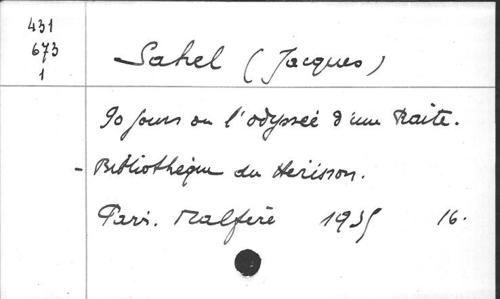 431
673
1
Sahel (Jacques)
90 jours ou l'odyssée d'une traite.
- Bibliothèque du Hérisson.
Paris. Malfère 1935 16.